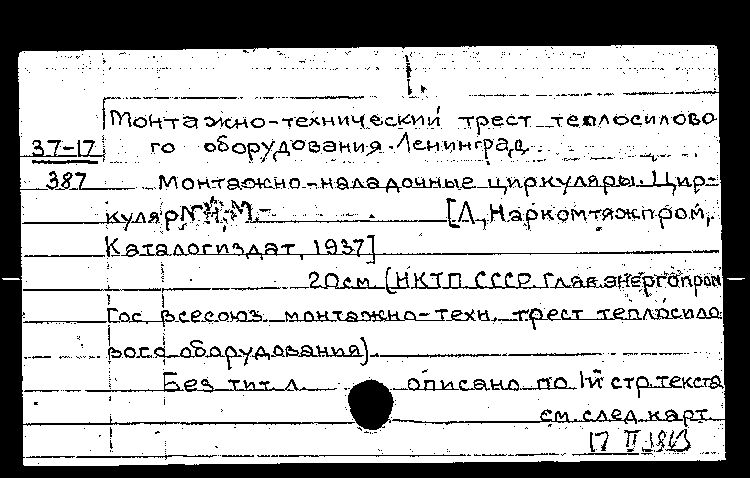 Монтажно-технический трест теплосилово
37-17 го оборудования. Ленинград
387 Монтажно-наладочные циркуляры. Цир-
куляр № М.- [Л., Наркомтяжпром,
Каталогиздат, 1937]
20см. (НКТП СССР. Главэнергопром
Гос. всесоюз. монтажно-техн. трест теплосило
вого оборудования).
Без тит. л. описано по 1й стр. текста
см. след. карт.
17 II